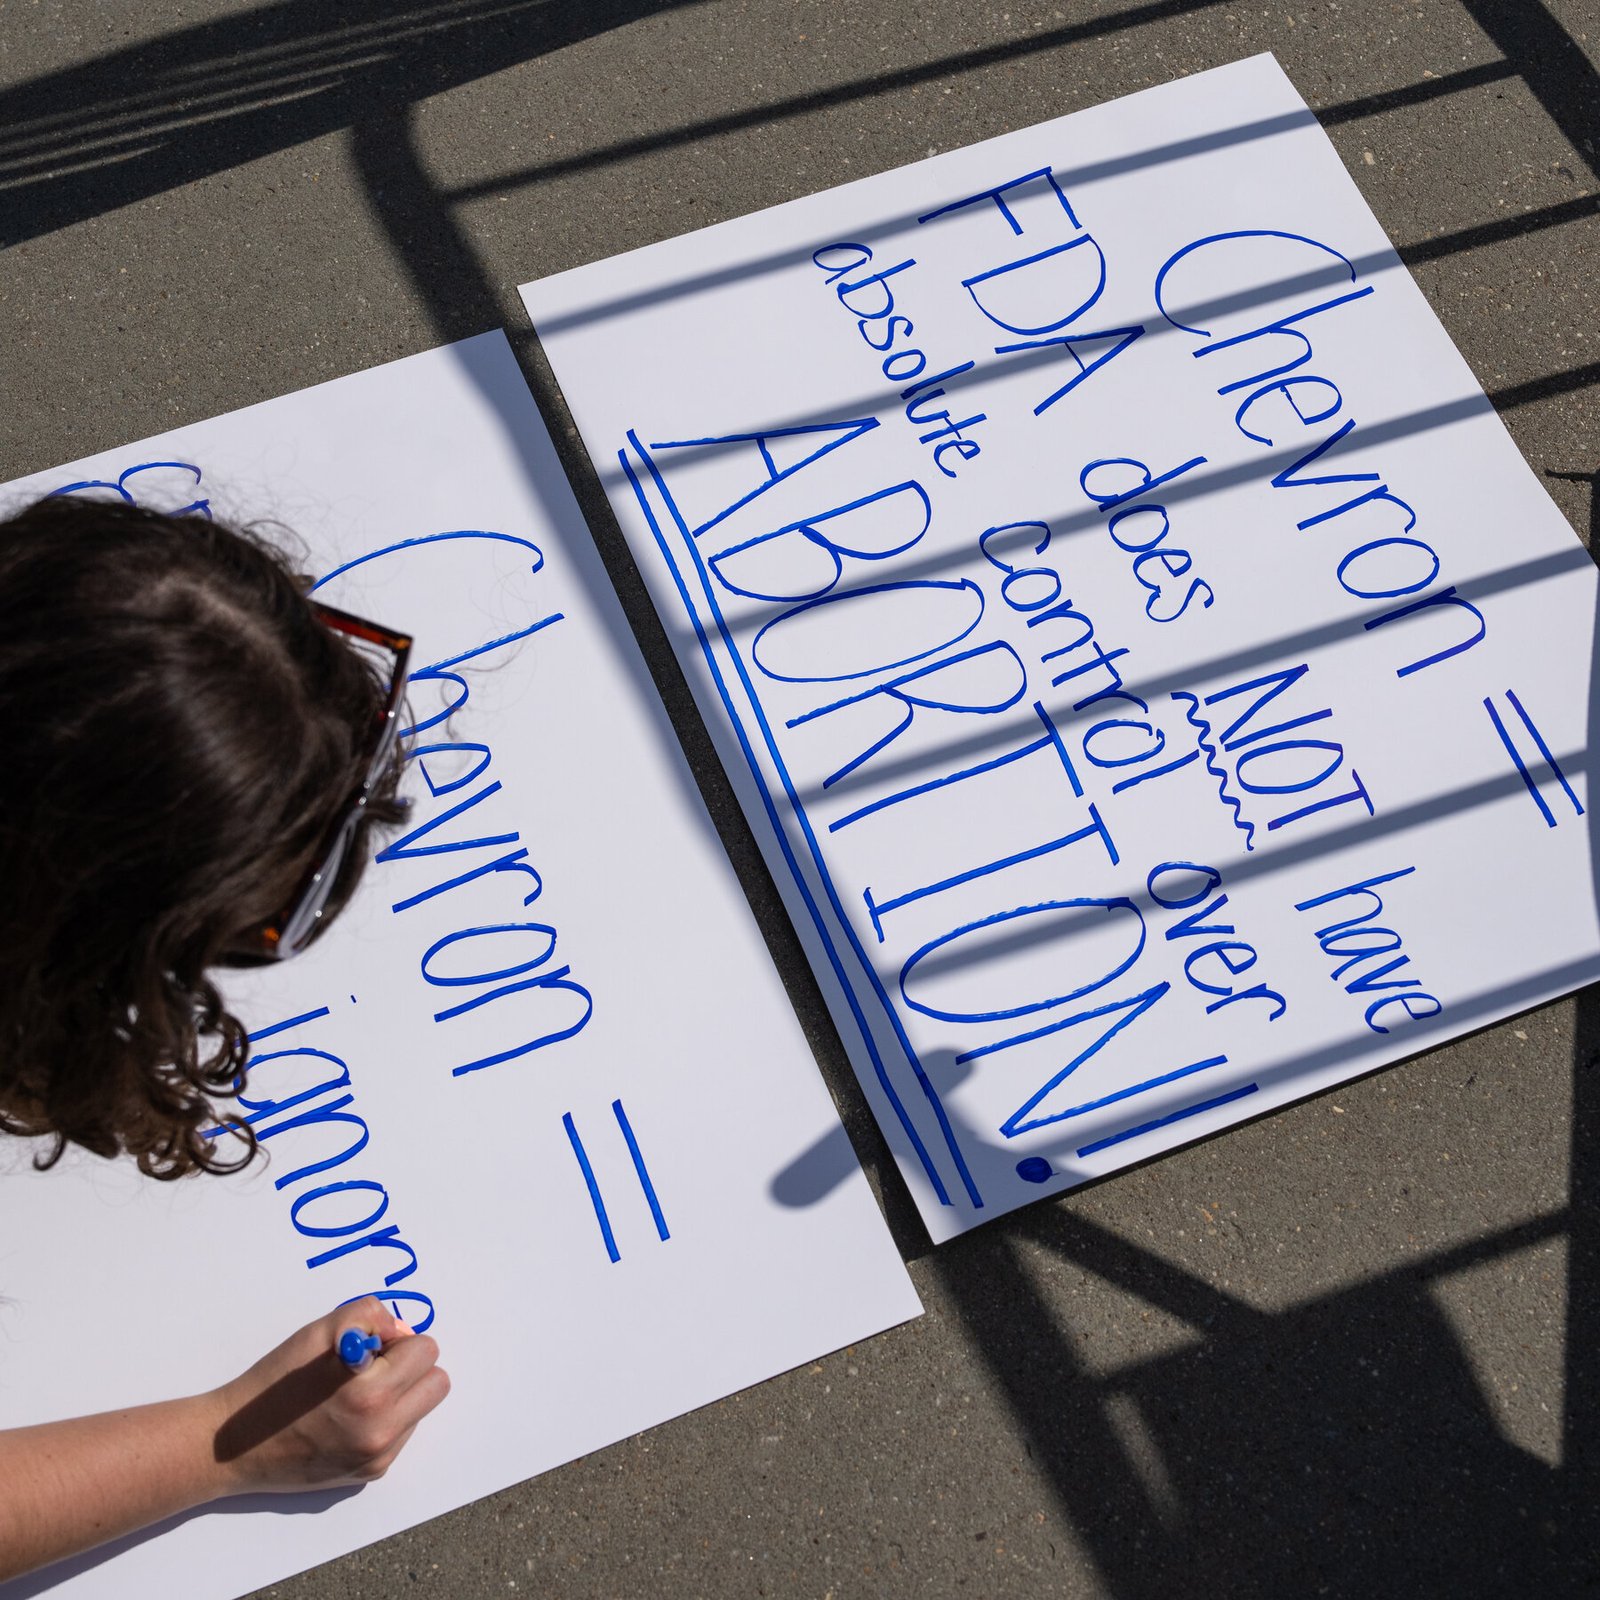 Chevron =
FDA does NOT have
absolute control over
ABORTION!
Chevron =
ignore